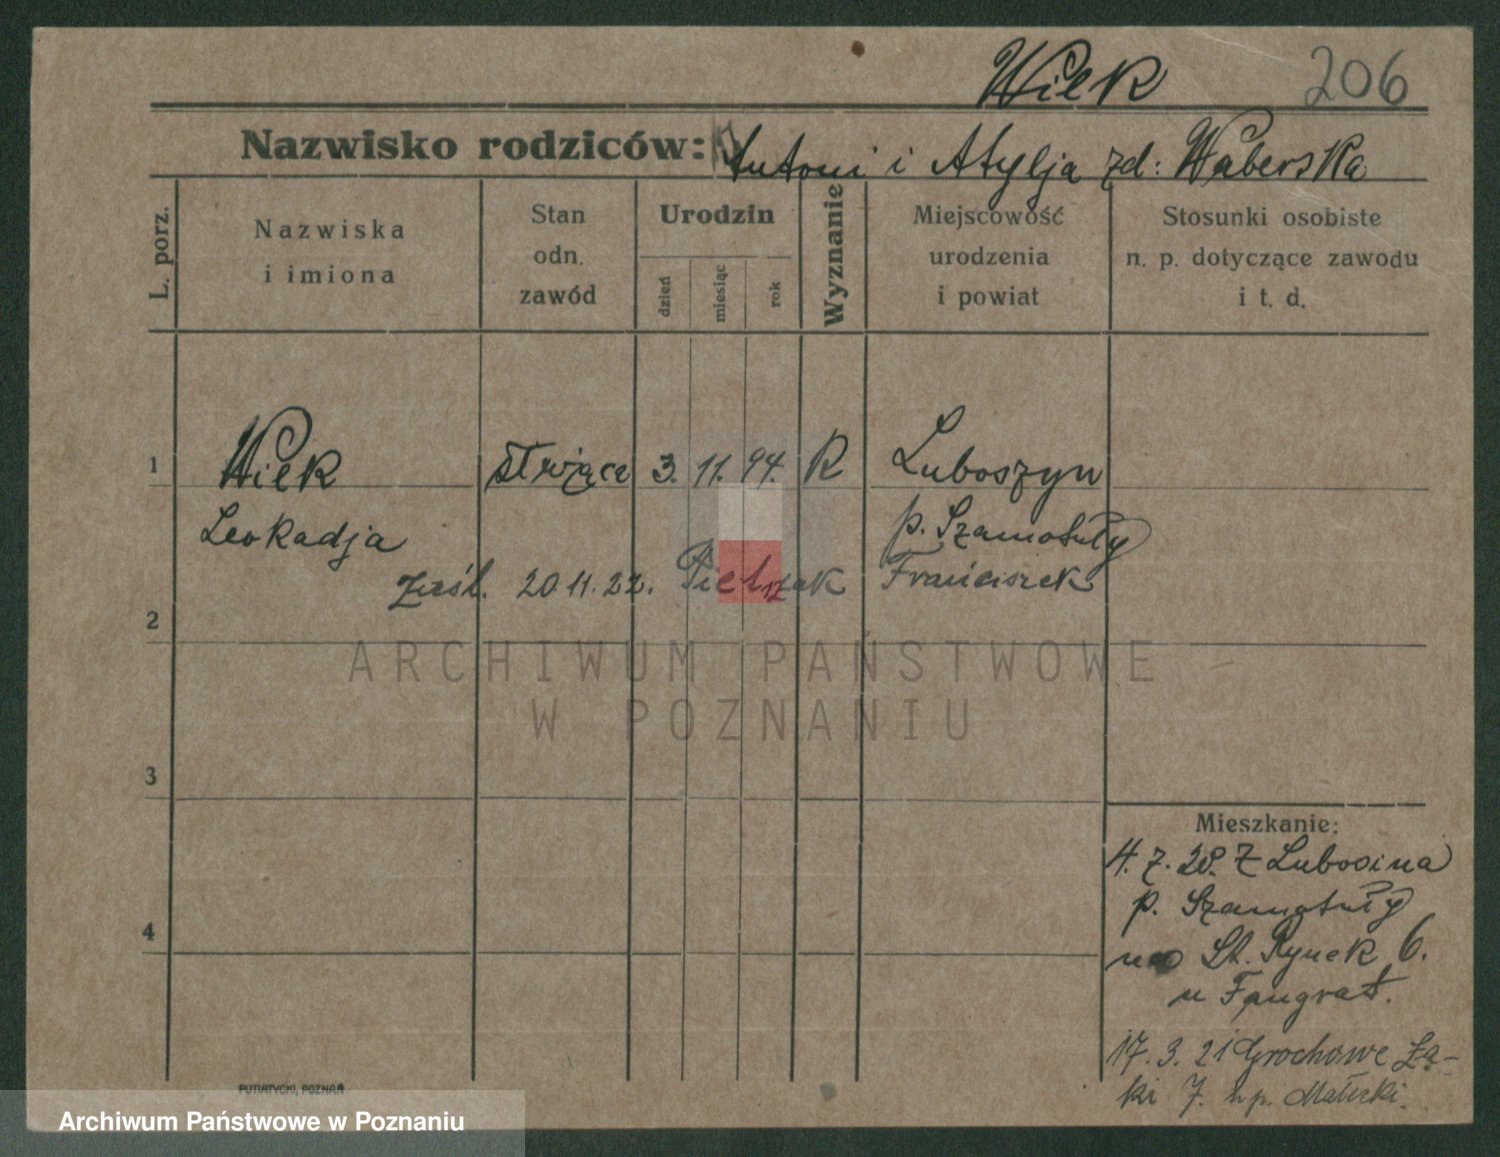 Wilk 206
Nazwisko rodziców: Antoni i Atylja zd: Waberska
L. porz.
Nazwiska
i imiona
Stan
odn.
zawód
Urodzin
dzień
miesiąc
rok
Wyznanie
Miejscowość
urodzenia
i powiat
Stosunki osobiste
n. p. dotyczące zawodu
i t. d.
1 Wilk służąca 3. 11. 94. R Luboszyn
Leokadja p. Szamotuły
zaśl. 20.11.22. Pielszak Franciszek
2
ARCHIWUM PAŃSTWOWE
W POZNANIU
3
Mieszkanie:
4. 7. 20. z Lubosina
p. Szamotuły
4
na St. Rynek 6.
u
17. 3. 21 Grochowe Łą-
ki 7. u p.
PUTIATYCKI, POZNAŃ
Archiwum Państwowe w Poznaniu